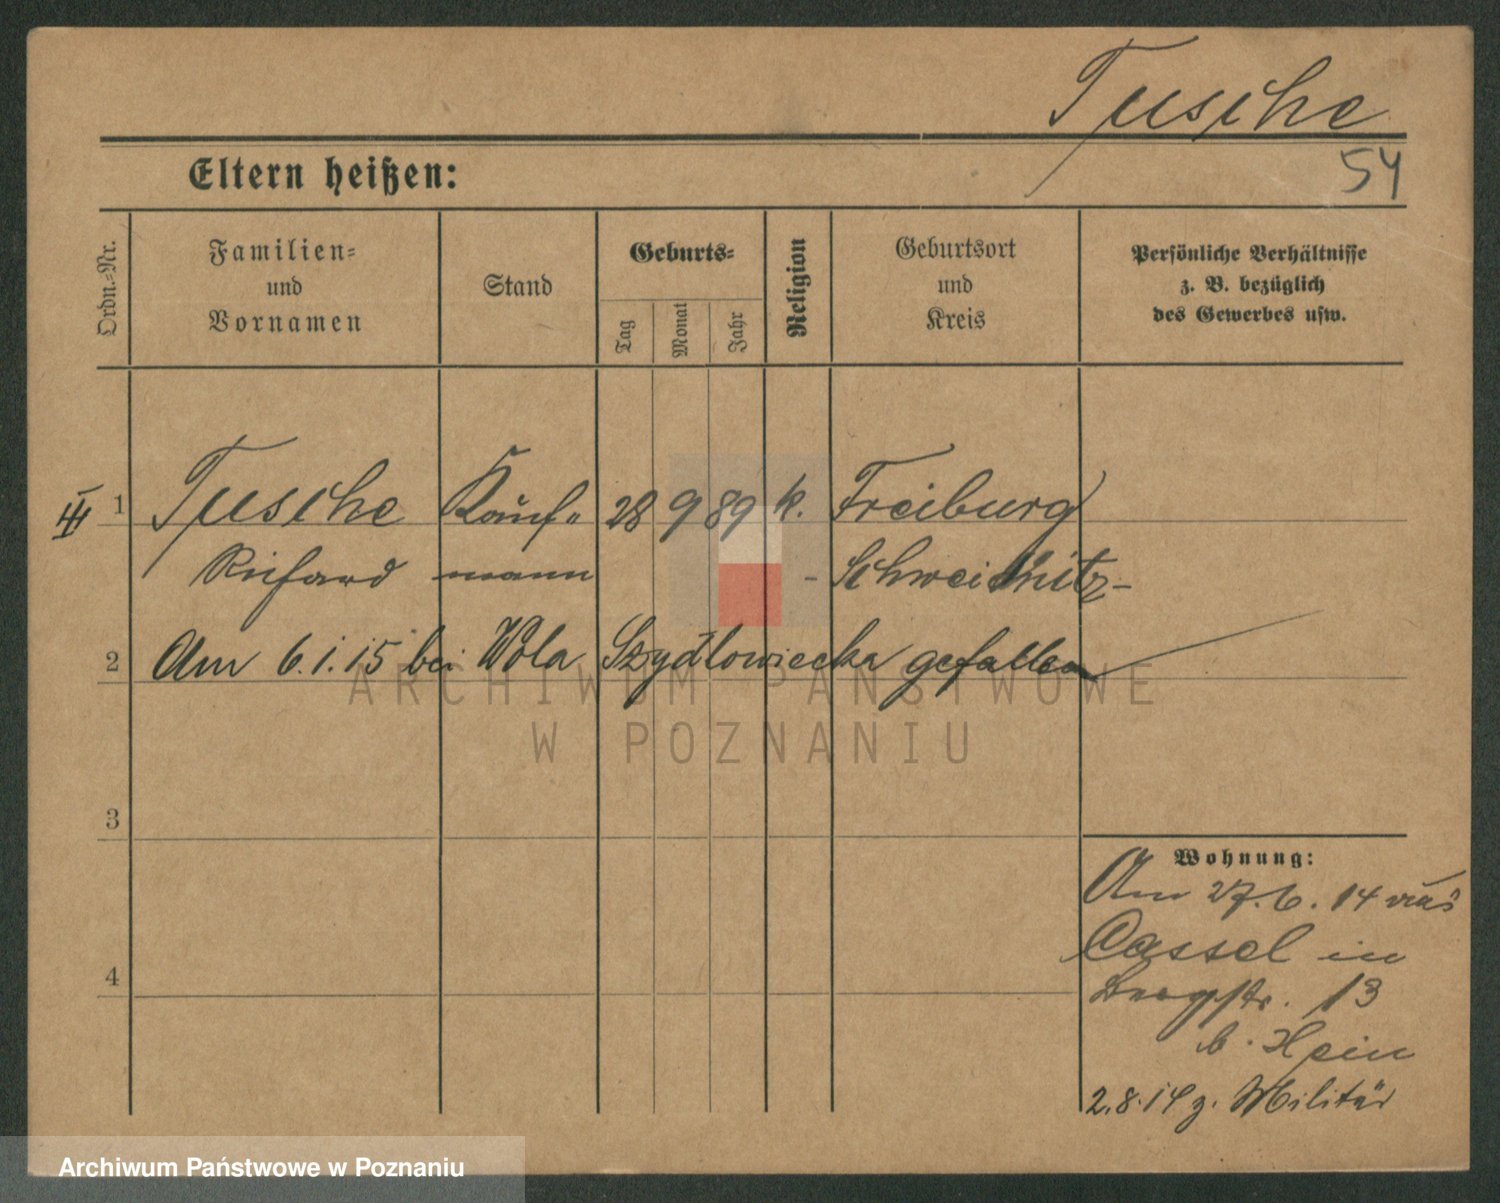 Tusche
54
Eltern heißen:
Ordn.-Nr.
Familien-
und
Vornamen
Stand
Geburts-
Tag
Monat
Jahr
Religion
Geburtsort
und
Kreis
Persönliche Verhältnisse
z. B. bezüglich
des Gewerbes usw.
III 1 Tusche Kauf- 28 9 89 k. Freiburg
Richard mann - Schweidnitz-
2 Am 6.1.15 bei Wola Szydlowiecka gefallen
ARCHIWUM PAŃSTWOWE
W POZNANIU
3
Wohnung:
Am 27.6.14 aus
Cassel in
4
Bergstr. 13
b. Hein
2.8.14 z. Militär
Archiwum Państwowe w Poznaniu